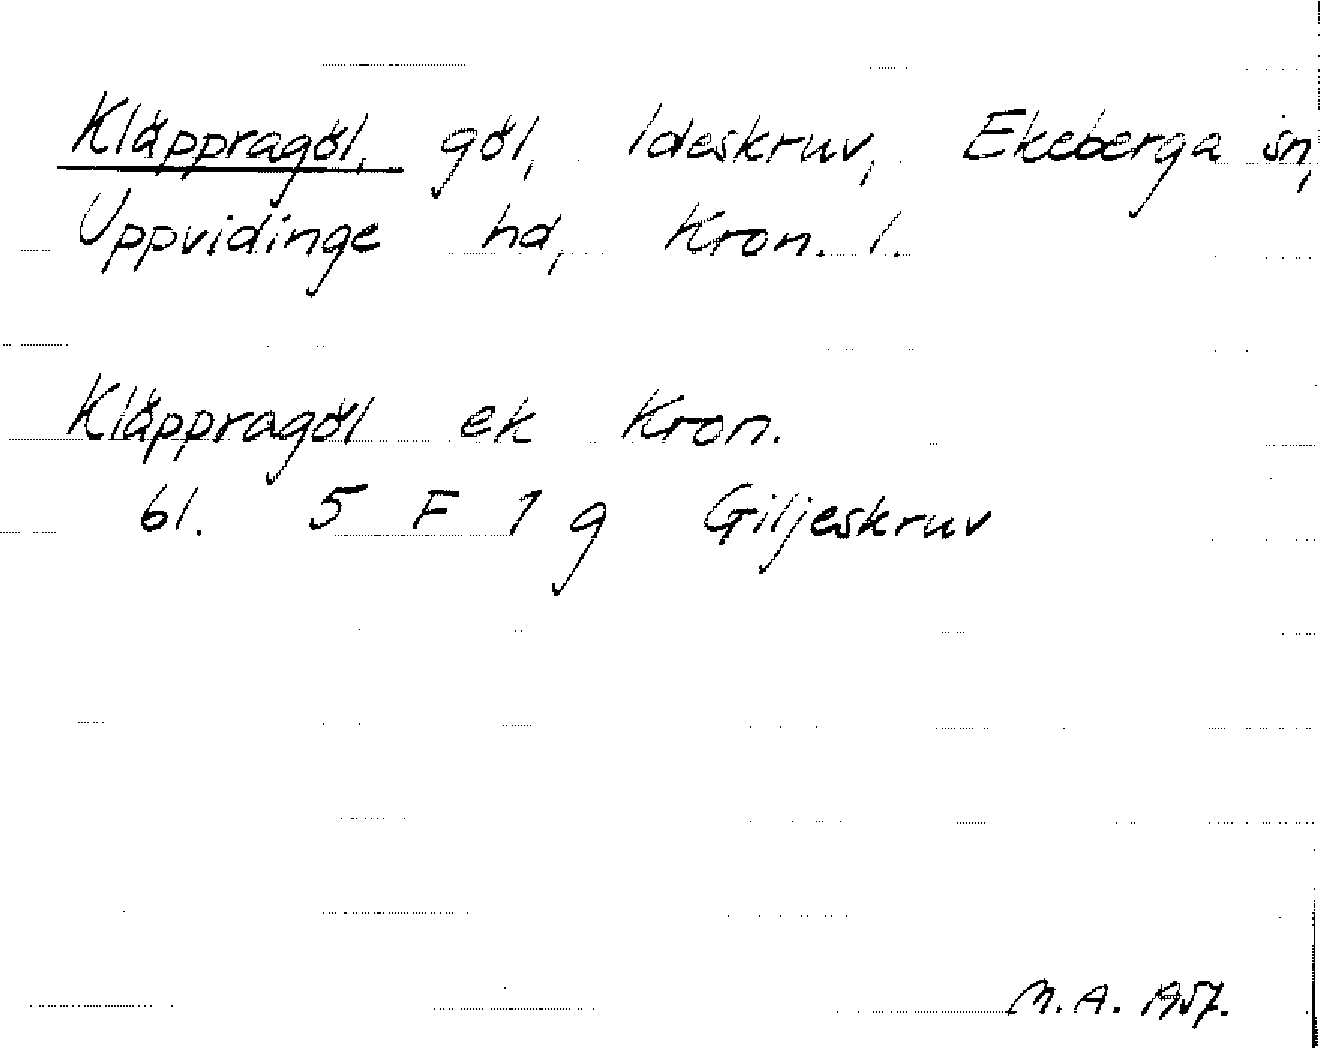 Kläppragöl, göl, Ideskruv, Ekeberga sn,
Uppvidinge hd, Kron. l.
Kläppragöl ek Kron.
bl. 5 F 1 g Giljeskruv
M.A. 1957.